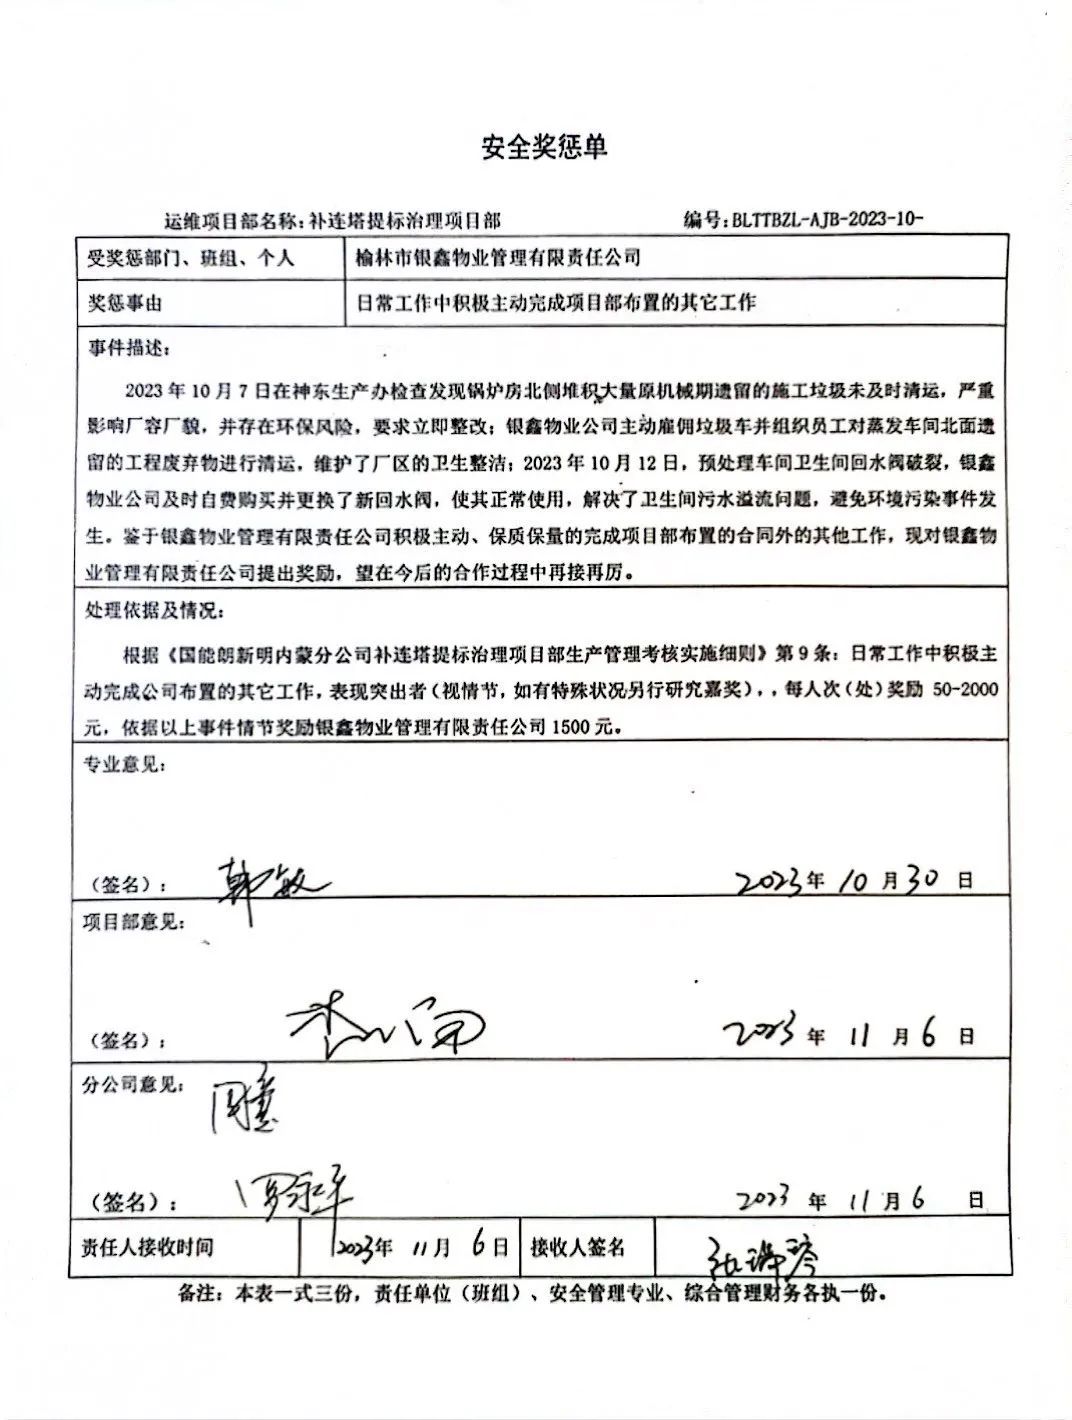 安全奖惩单
运维项目部名称：补连塔提标治理项目部 编号：BLTTBZL-AJB-2023-10-
受奖惩部门、班组、个人 榆林市银鑫物业管理有限责任公司
奖惩事由 日常工作中积极主动完成项目部布置的其它工作
事件描述：
2023 年 10 月 7 日在神东生产办检查发现锅炉房北侧堆积大量原机械期遗留的施工垃圾未及时清运，严重
影响厂容厂貌，并存在环保风险，要求立即整改；银鑫物业公司主动雇佣垃圾车并组织员工对蒸发车间北面遗
留的工程废弃物进行清运，维护了厂区的卫生整洁；2023 年 10 月 12 日，预处理车间卫生间回水阀破裂，银鑫
物业公司及时自费购买并更换了新回水阀，使其正常使用，解决了卫生间污水溢流问题，避免环境污染事件发
生。鉴于银鑫物业管理有限责任公司积极主动、保质保量的完成项目部布置的合同外的其他工作，现对银鑫物
业管理有限责任公司提出奖励，望在今后的合作过程中再接再厉。
处理依据及情况：
根据《国能朗新明内蒙分公司补连塔提标治理项目部生产管理考核实施细则》第 9 条：日常工作中积极主
动完成公司布置的其它工作，表现突出者（视情节，如有特殊状况另行研究嘉奖），，每人次（处）奖励 50-2000
元，依据以上事件情节奖励银鑫物业管理有限责任公司 1500 元。
专业意见：
（签名）： 韩敏 2023 年 10 月 30 日
项目部意见：
（签名）： 2023 年 11 月 6 日
分公司意见：
（签名）： 罗永平 2023 年 11 月 6 日
责任人接收时间 2023年 11 月 6 日 接收人签名
备注：本表一式三份，责任单位（班组）、安全管理专业、综合管理财务各执一份。